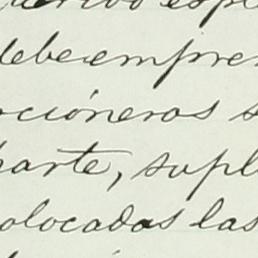 debe empren
cióneros s
parte, supl
olocados las